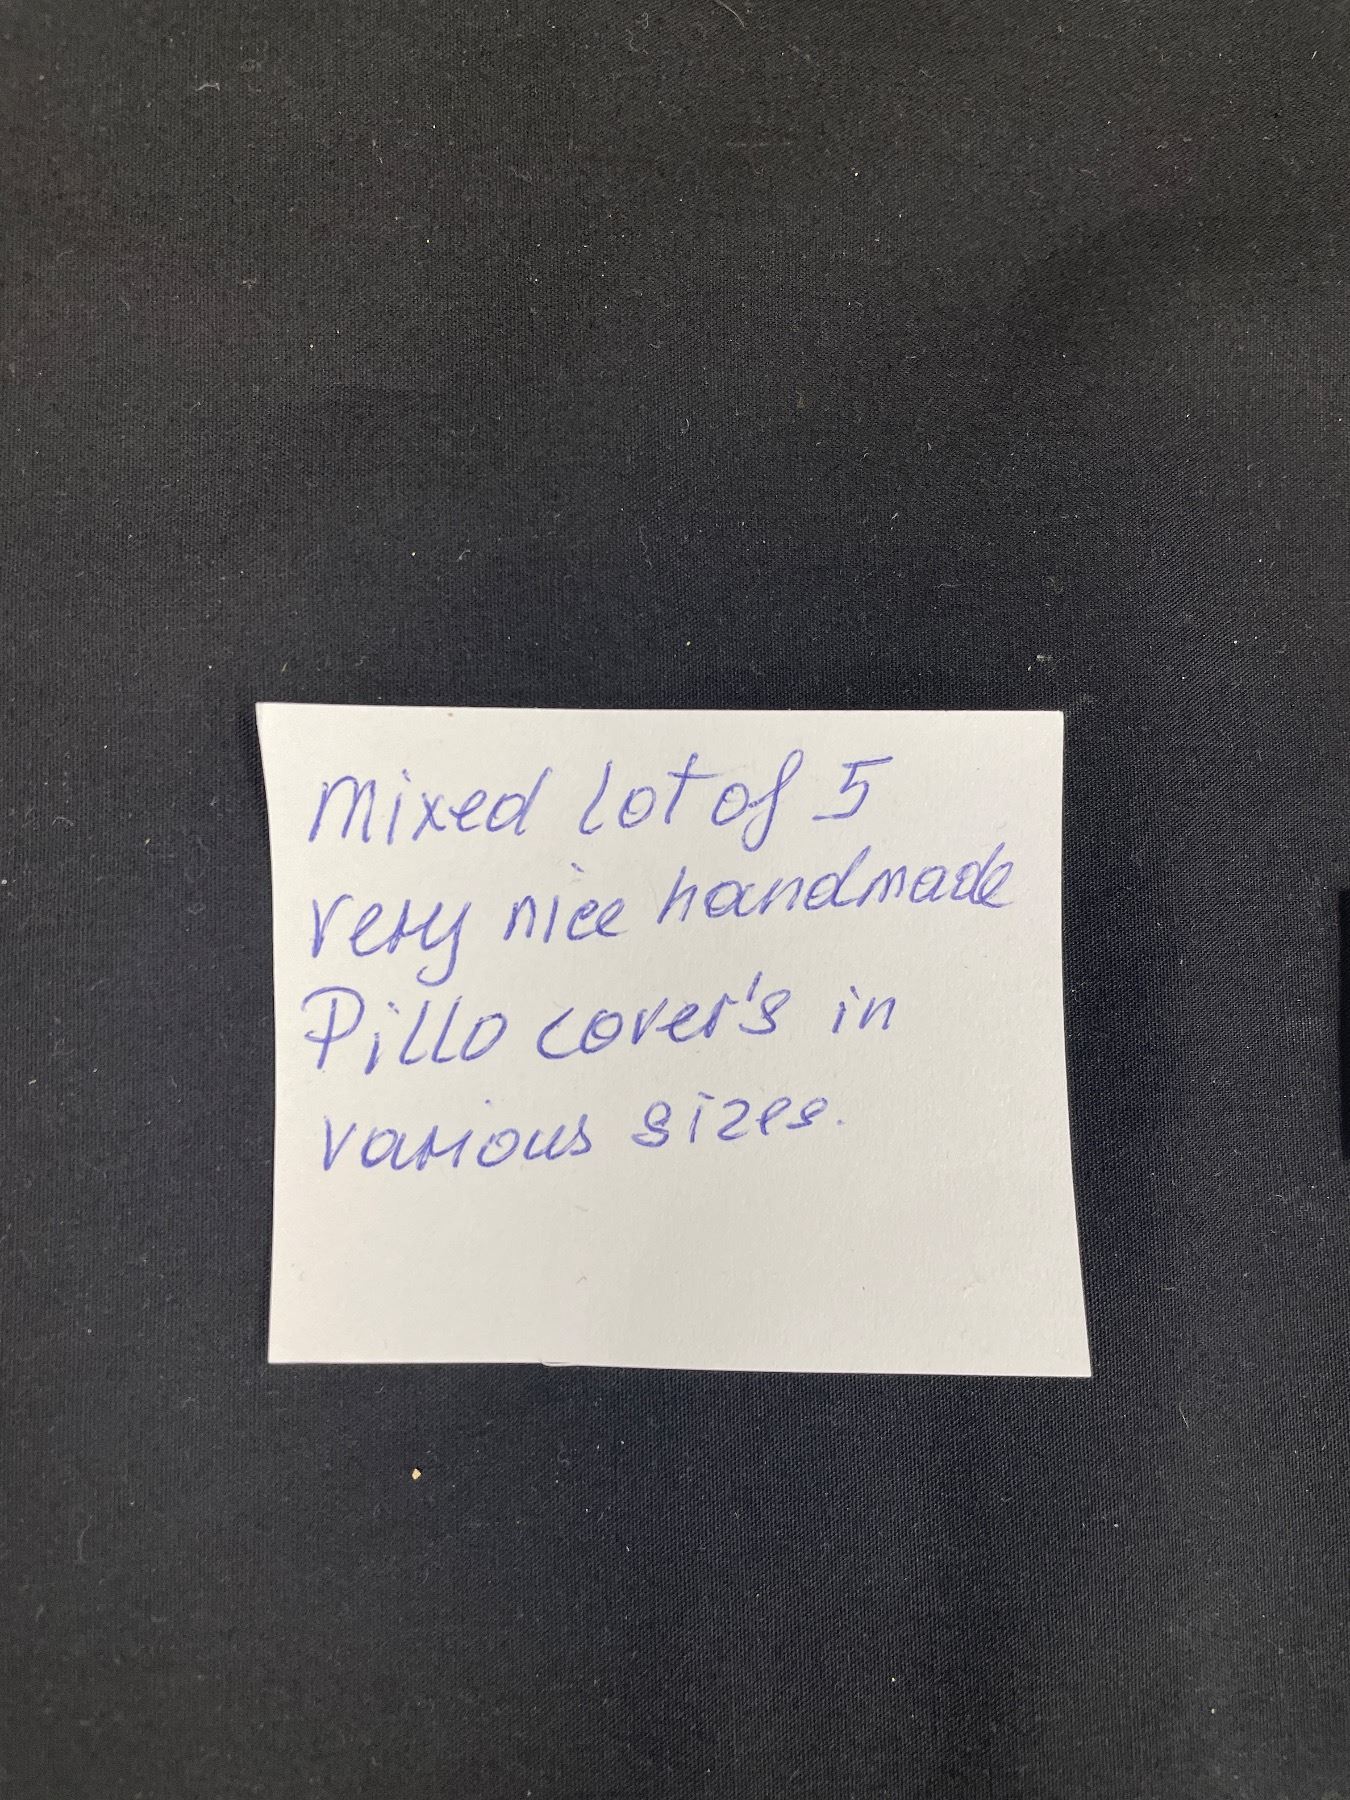 Mixed lot of 5
very nice handmade
Pillo cover's in
various sizes.